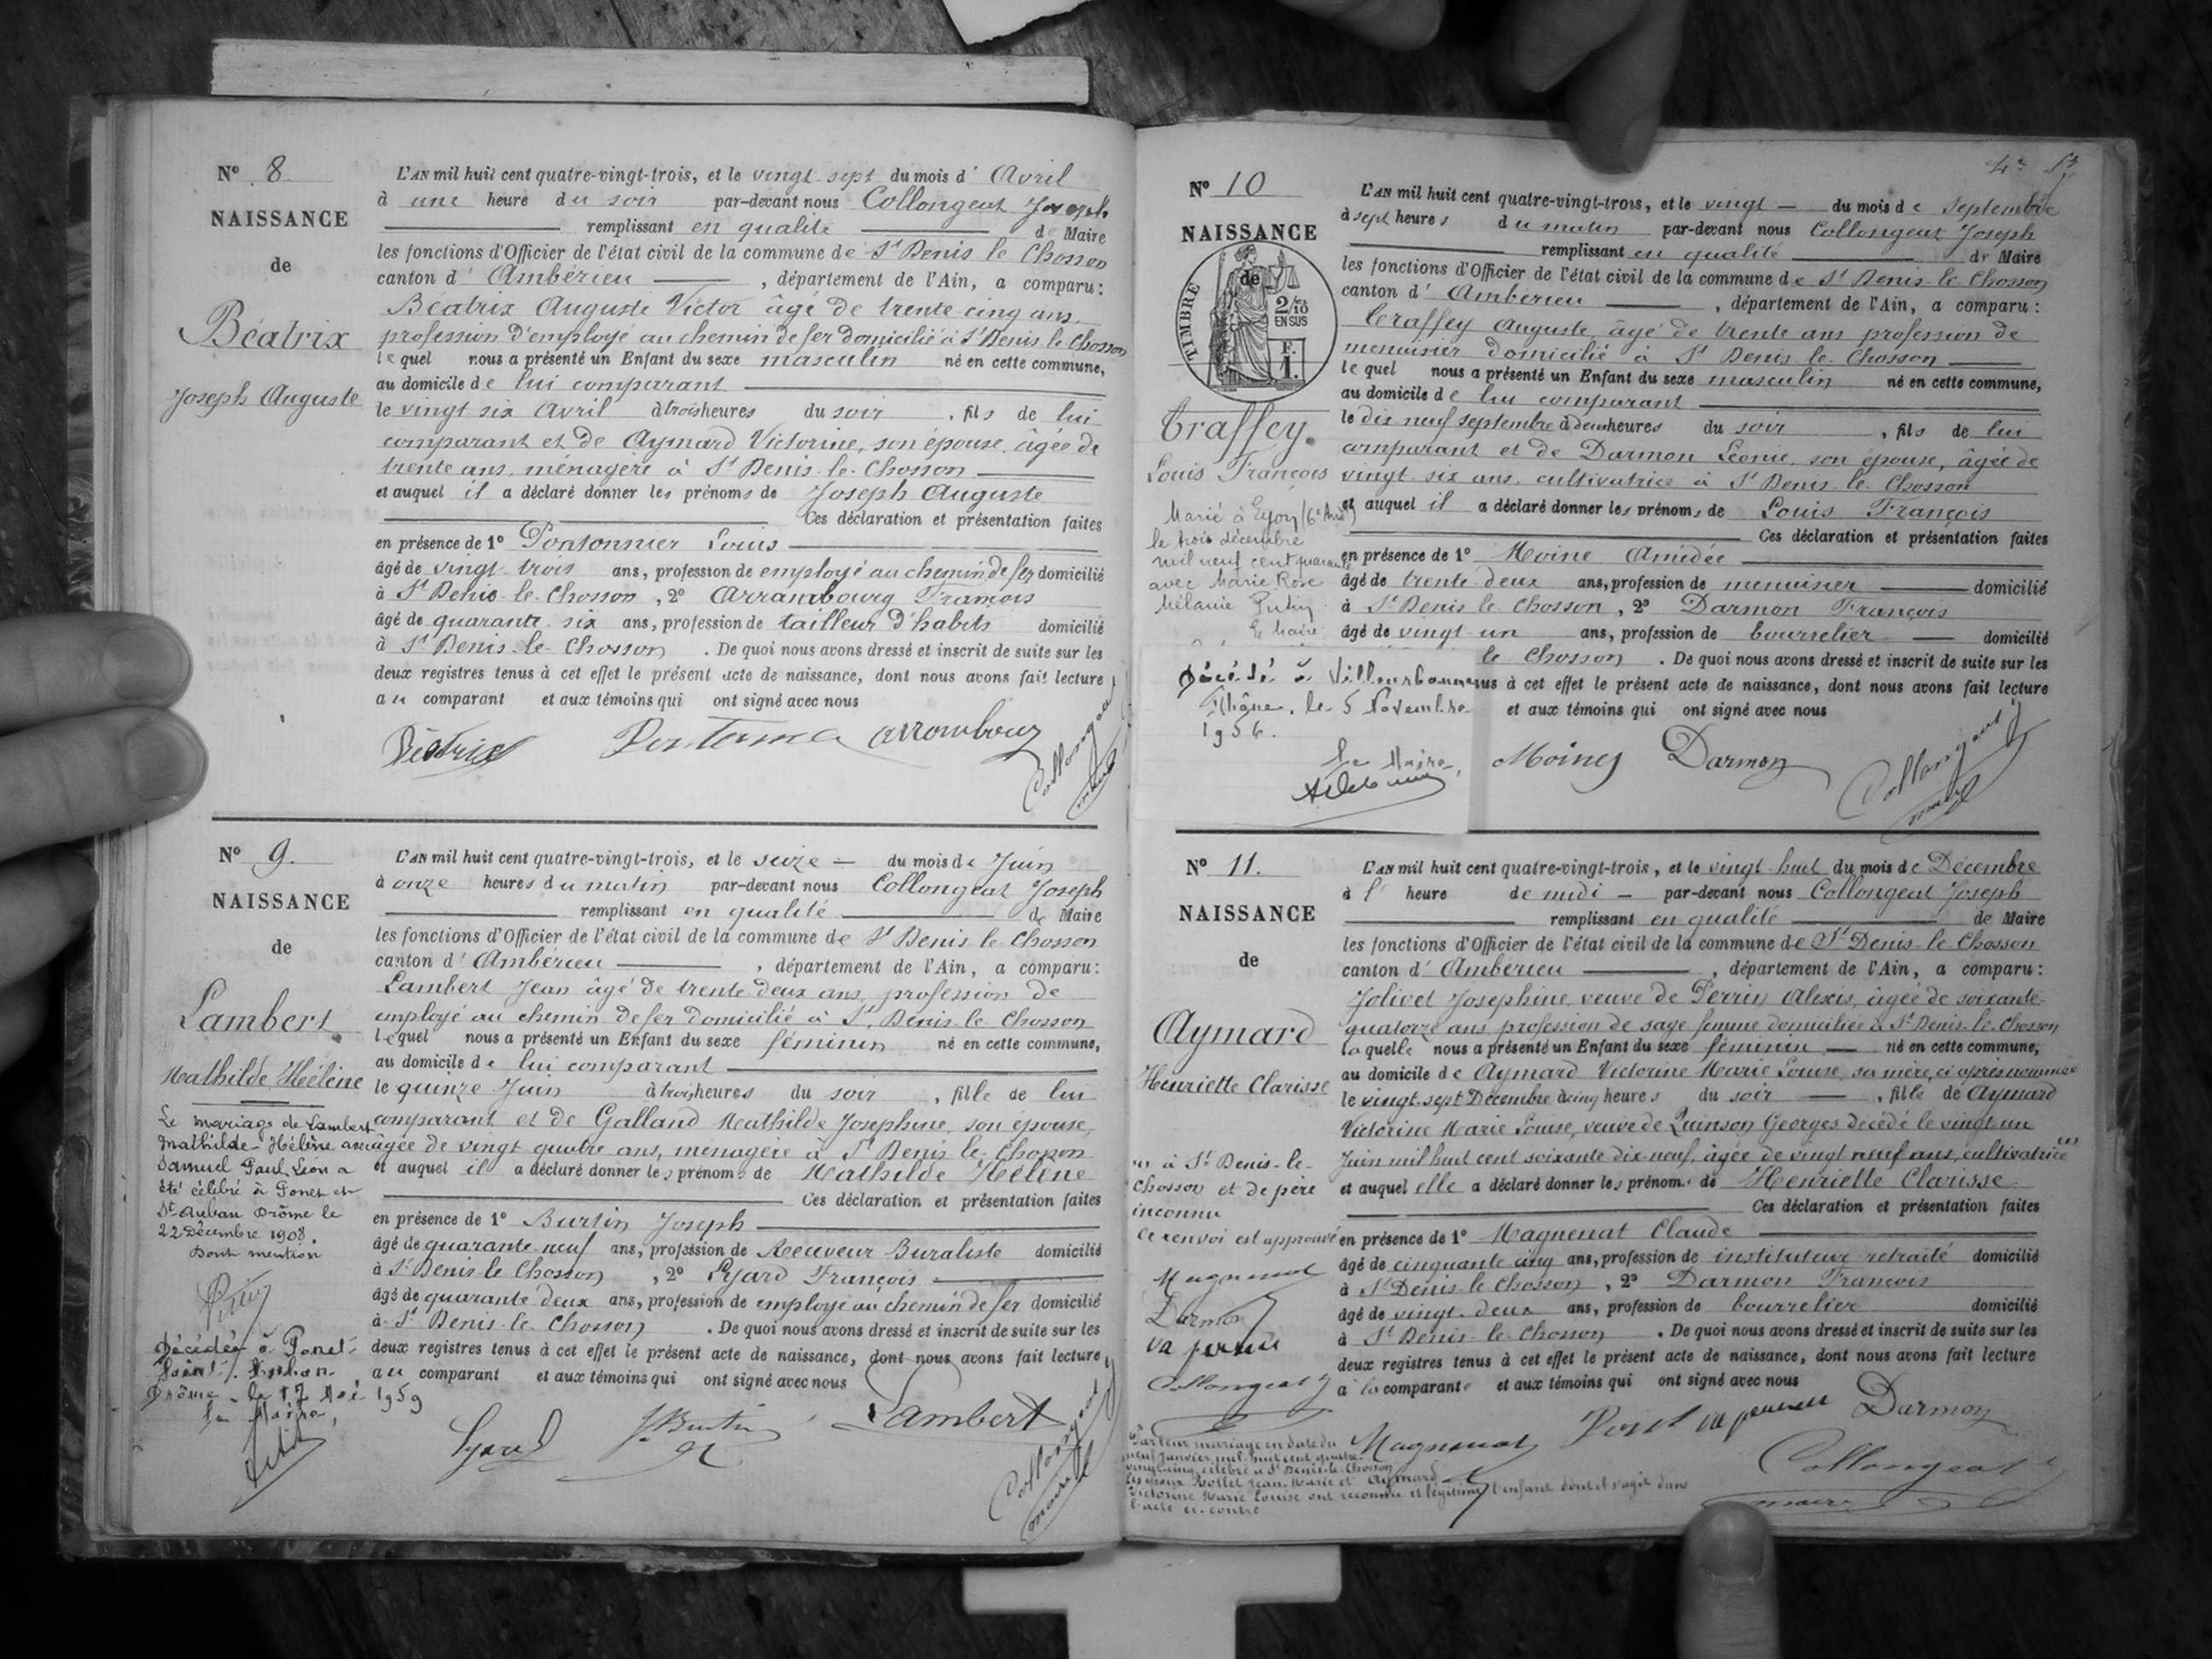 N° 8
NAISSANCE
de
Béatrix
Joseph Auguste
L'AN mil huit cent quatre-vingt-trois, et le vingt sept du mois d' Avril
à une heure du soir par-devant nous Collongeat Joseph
remplissant en qualité de Maire
les fonctions d'Officier de l'état civil de la commune de St Denis le Chosson
canton d' Ambérieu , département de l'Ain, a comparu :
Béatrix Auguste Victor âgé de trente cinq ans,
profession d'employé au chemin de fer domicilié à St Denis le Chosson
lequel nous a présenté un Enfant du sexe masculin né en cette commune,
au domicile de lui comparant
le vingt six Avril à trois heures du soir , fils de lui
comparant et de Aymard Victorine, son épouse, âgée de
trente ans, ménagère à St Denis-le-Chosson
et auquel il a déclaré donner les prénoms de Joseph Auguste
Ces déclaration et présentation faites
en présence de 1° Pontonnier Louis
âgé de vingt trois ans, profession de employé au chemin de fer domicilié
à St Denis-le-Chosson , 2° Arrambourg François
âgé de quarante six ans, profession de tailleur d'habits domicilié
à St Denis-le-Chosson . De quoi nous avons dressé et inscrit de suite sur les
deux registres tenus à cet effet le présent acte de naissance, dont nous avons fait lecture
au comparant et aux témoins qui ont signé avec nous
Béatrix
Collongeat
maire
N° 9.
NAISSANCE
de
Lambert
Mathilde Hélène
Le mariage de Lambert
Mathilde-Hélène avec
Samuel Paul Léon a
été célébré à Ponet et
St Auban Drôme le
22 Décembre 1908.
Dont mention
Décédée à Ponet-
Saint-Auban
Drôme - le 17 Mai 1959
Le Maire,
L'AN mil huit cent quatre-vingt-trois, et le seize du mois de Juin
à onze heures du matin par-devant nous Collongeat Joseph
remplissant en qualité de Maire
les fonctions d'Officier de l'état civil de la commune de St Denis le Chosson
canton d' Ambérieu , département de l'Ain, a comparu :
Lambert Jean âgé de trente deux ans, profession de
employé au chemin de fer domicilié à St Denis le Chosson
lequel nous a présenté un Enfant du sexe féminin né en cette commune,
au domicile de lui comparant
le quinze Juin à trois heures du soir , fille de lui
comparant et de Galland Mathilde Josephine, son épouse,
âgée de vingt quatre ans, ménagère à St Denis le Chosson
et auquel il a déclaré donner les prénoms de Mathilde Hélène
Ces déclaration et présentation faites
en présence de 1° Burtin Joseph
âgé de quarante neuf ans, profession de Receveur Buraliste domicilié
à St Denis le Chosson , 2° Lyard François
âgé de quarante deux ans, profession de employé au chemin de fer domicilié
à St Denis-le-Chosson . De quoi nous avons dressé et inscrit de suite sur les
deux registres tenus à cet effet le présent acte de naissance, dont nous avons fait lecture
au comparant et aux témoins qui ont signé avec nous
Lyard Burtin Lambert
Collongeat
maire
N° 10
NAISSANCE
de
TIMBRE
2/10
EN SUS
F.
1.
Traffey
Louis François
Marié à Lyon (6e Arrt)
le trois décembre
mil neuf cent quarante
avec Marie Rose
Mélanie
Le Maire
Décédé à Villeurbanne
Rhône, le 5 Novembre
1956.
Le Maire,
L'AN mil huit cent quatre-vingt-trois, et le vingt du mois de Septembre
à sept heures du matin par-devant nous Collongeat Joseph
remplissant en qualité de Maire
les fonctions d'Officier de l'état civil de la commune de St Denis-le-Chosson
canton d' Ambérieu , département de l'Ain, a comparu :
Traffey Auguste âgé de trente ans profession de
menuisier domicilié à St Denis-le-Chosson
lequel nous a présenté un Enfant du sexe masculin né en cette commune,
au domicile de lui comparant
le dix neuf septembre à deux heures du soir , fils de lui
comparant et de Darmon Léonie, son épouse, âgée de
vingt six ans, cultivatrice à St Denis-le-Chosson
et auquel il a déclaré donner les prénoms de Louis François
Ces déclaration et présentation faites
en présence de 1° Moine Amédée
âgé de trente deux ans, profession de menuisier domicilié
à St Denis le Chosson , 2° Darmon François
âgé de vingt un ans, profession de bourrelier domicilié
le Chosson . De quoi nous avons dressé et inscrit de suite sur les
à cet effet le présent acte de naissance, dont nous avons fait lecture
et aux témoins qui ont signé avec nous
Moine Darmon
Collongeat
maire
N° 11.
NAISSANCE
de
Aymard
Henriette Clarisse
à St Denis-le-
Chosson et de père
inconnu
Ce renvoi est approuvé
Magnenat
Darmon
Collongeat
L'AN mil huit cent quatre-vingt-trois, et le vingt huit du mois de Décembre
à l' heure de midi par-devant nous Collongeat Joseph
remplissant en qualité de Maire
les fonctions d'Officier de l'état civil de la commune de St Denis-le-Chosson
canton d' Ambérieu , département de l'Ain, a comparu :
Jolivet Josephine, veuve de Perrin Alexis, âgée de soixante
quatorze ans profession de sage femme domiciliée à St Denis-le-Chosson
laquelle nous a présenté un Enfant du sexe féminin né en cette commune,
au domicile de Aymard Victorine Marie Louise, sa mère, ci après nommée
le vingt-sept Décembre à cinq heures du soir , fille de Aymard
Victorine Marie Louise, veuve de Quinson Georges décédé le vingt un
Juin mil huit cent soixante dix neuf, âgée de vingt neuf ans, cultivatrice
et auquel elle a déclaré donner les prénoms de Henriette Clarisse
Ces déclaration et présentation faites
en présence de 1° Magnenat Claude
âgé de cinquante cinq ans, profession de instituteur retraité domicilié
à St Denis le Chosson , 2° Darmon François
âgé de vingt-deux ans, profession de bourrelier domicilié
à St Denis-le-Chosson . De quoi nous avons dressé et inscrit de suite sur les
deux registres tenus à cet effet le présent acte de naissance, dont nous avons fait lecture
à la comparante et aux témoins qui ont signé avec nous
Magnenat Darmon
Collongeat
maire
Par leur mariage en date du
neuf Janvier mil huit cent quatre-
vingt-cinq célébré à St Denis-le-Chosson
les époux Bollet Jean-Marie et Aymard
Victorine Marie Louise ont reconnu et légitimé l'enfant dont il s'agit dans
l'acte ci-contre